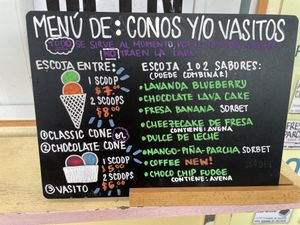 MENÚ DE: CONOS Y/O VASITOS
TODO SE SIRVE AL MOMENTO
NO TRAEN LA TAPA
ESCOJA ENTRE:
1 SCOOP
$7.00
2 SCOOPS
$8.00
①CLASSIC CONE or
②CHOCOLATE CONE
1 SCOOP
$5.00
2 SCOOPS
$6.00
③VASITO
ESCOJA 1 o 2 SABORES:
(PUEDE COMBINAR)
•LAVANDA BLUEBERRY
•CHOCOLATE LAVA CAKE
•FRESA BANANA SORBET
•CHEEZECAKE DE FRESA
CONTIENE: AVENA
•DULCE DE LECHE
•MANGO-PIÑA-PARCHA SORBET
•COFFEE NEW!
•CHOCO CHIP FUDGE
CONTIENE: AVENA